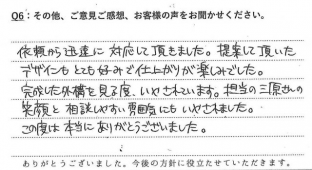 Q6：その他、ご意見ご感想、お客様の声をお聞かせください。
依頼から迅速に対応して頂きました。提案して頂いた
デザインもとても好みで仕上がりが楽しみでした。
完成した外構を見る度、いやされています。担当の三原さんの
笑顔と相談しやすい雰囲気にもいやされました。
この度は本当にありがとうございました。
ありがとうございました。今後の方針に役立たせていただきます。